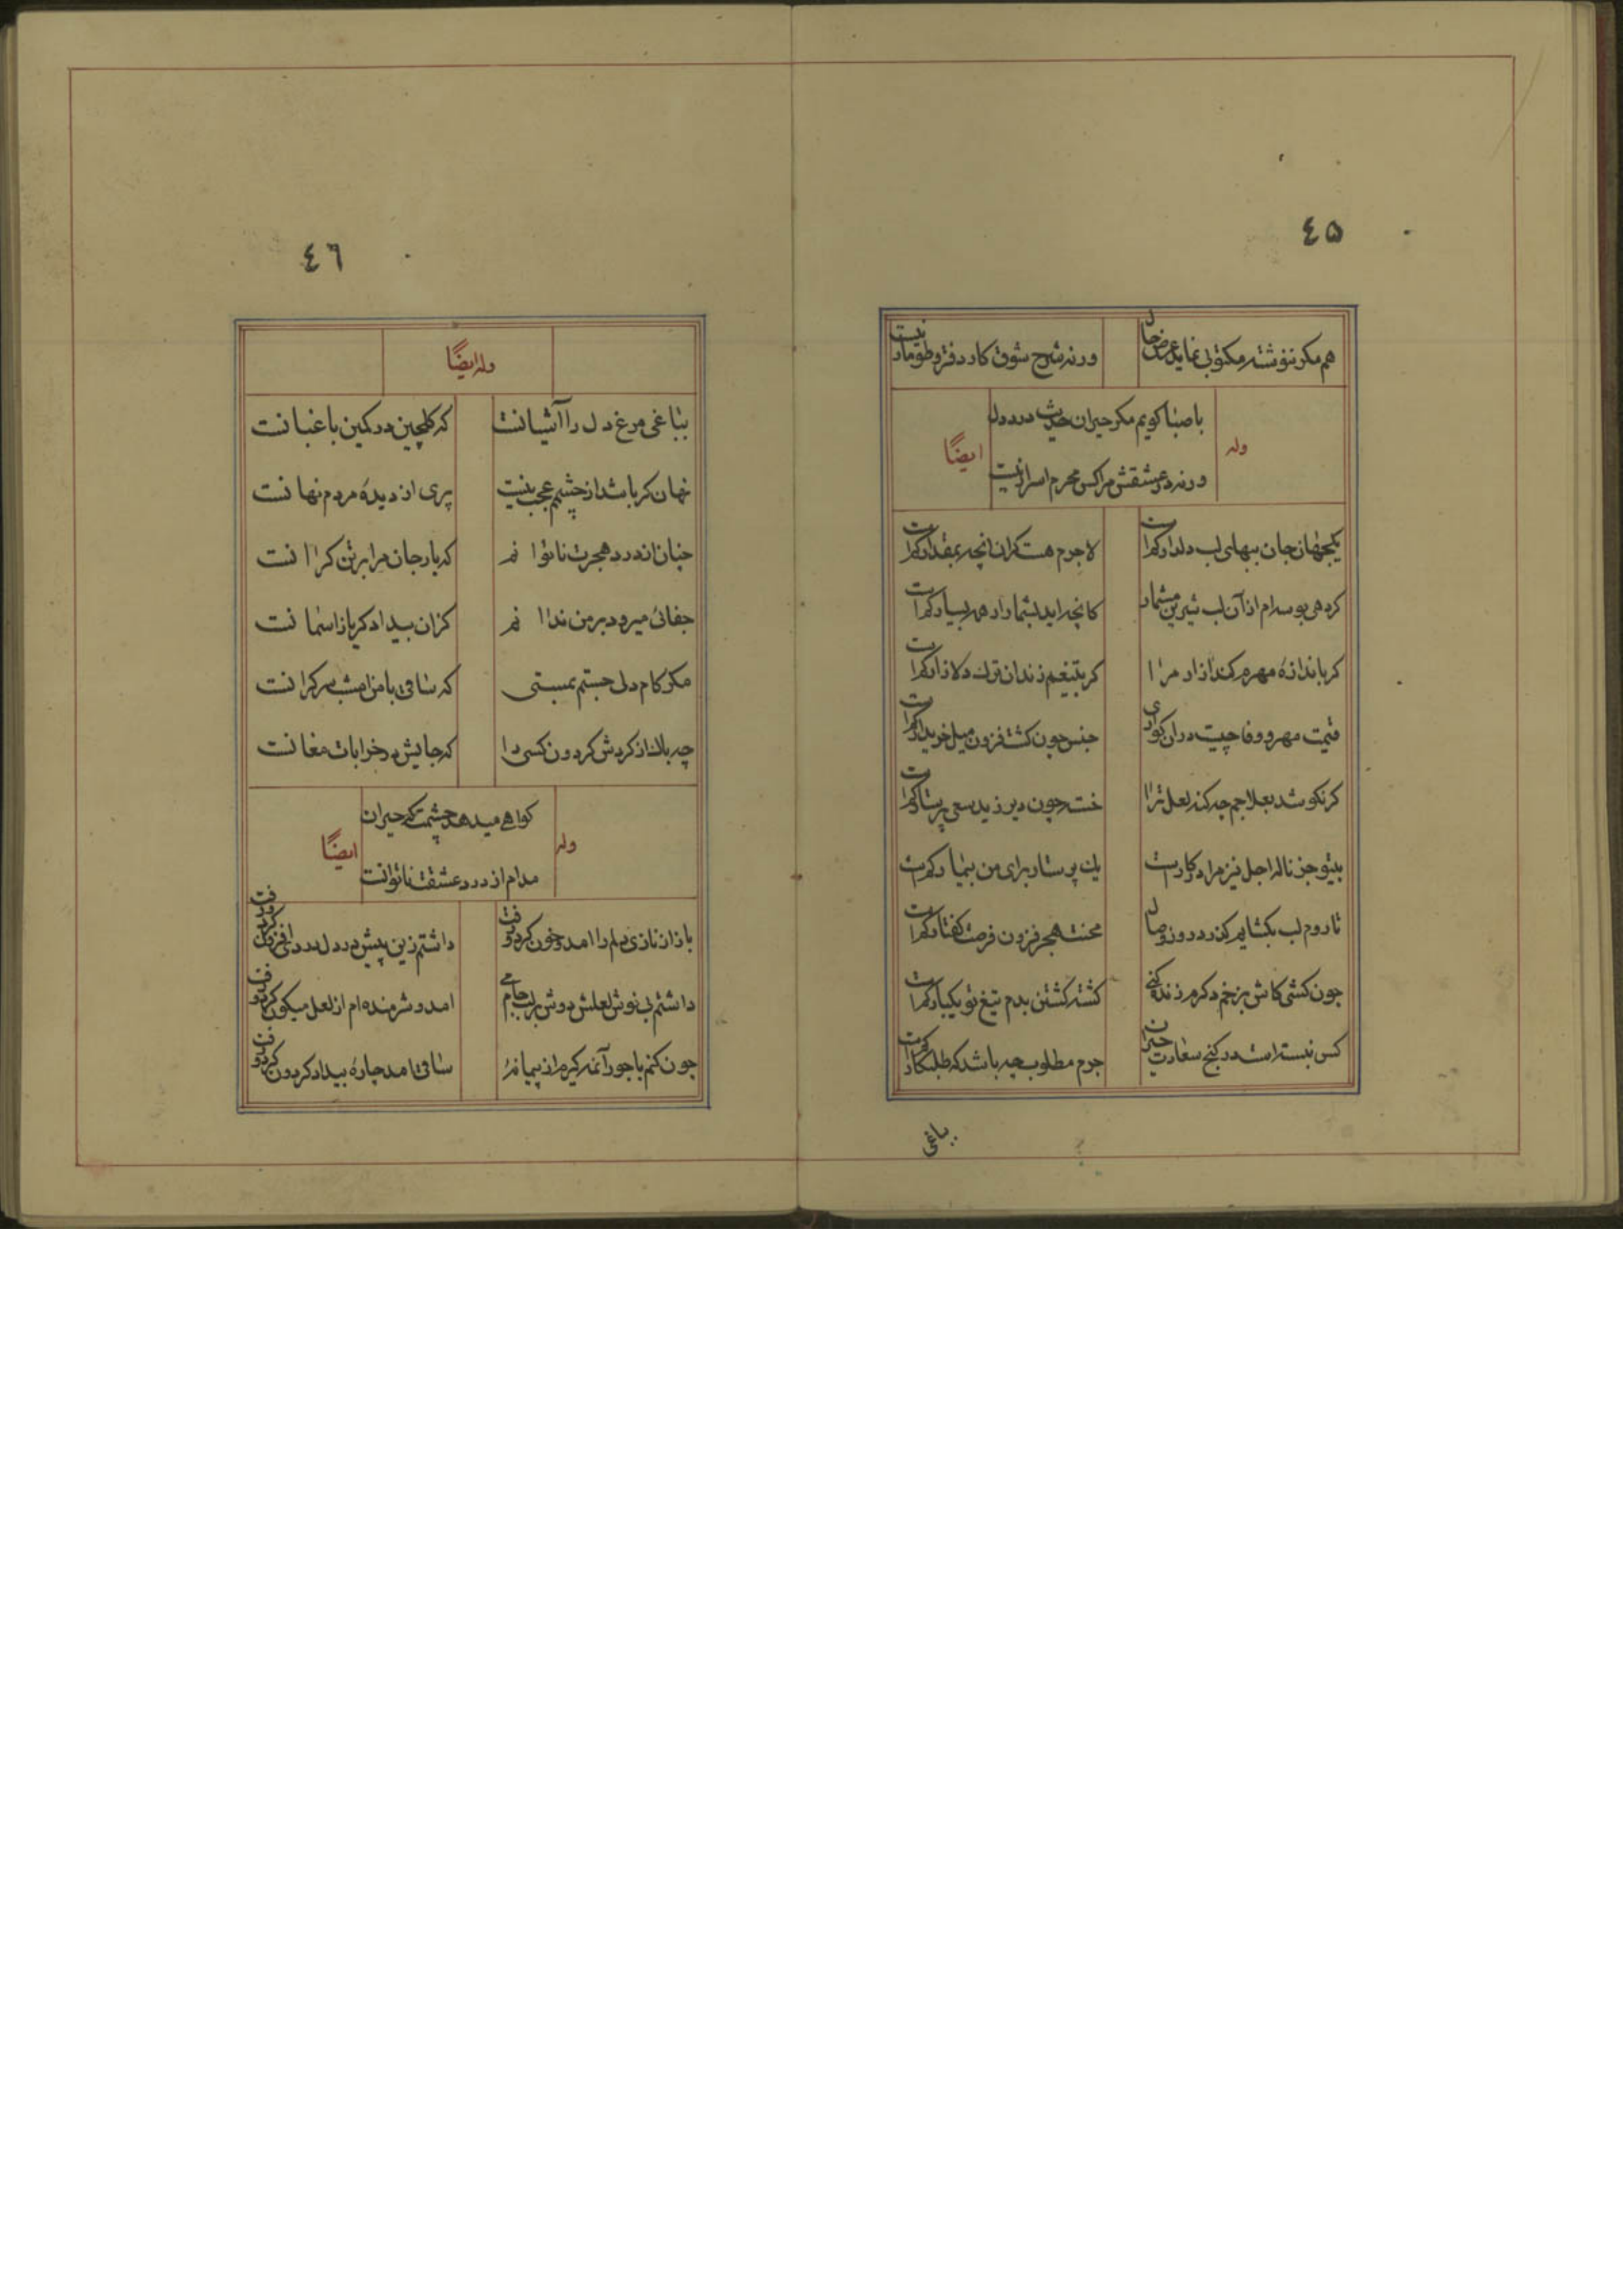 ٤۵
هم مکر ننوشته مکتوبی نماید عرض حال
ورنه شرح شوق کار دفتر و طومار نیست
با صبا کویم مکر حیران حدیث درد دل
وله
ایضًا
ورنه در عشقش مرا کس محرم اسرار نیست
یکجهان جان ببهای لب دلدار کم است
لاجرم هست کران انچه بمقدار کم است
کر دهی بوسه ام از آن لب شیرین مشمار
کانچه اید بشمار ار همه بسیار کم است
کر باندازه مهرم کند ازار مرا
کر بتیغم زند ان ترک دلازار کم است
قیمت مهر و وفا چیست در ان کو اری
جنس چون کشت فزون میل خریدار کم است
کر نکوشد بعلاجم چه کند لعل ترا
خسته چون دیر زید سعی پرستار کم است
بیتو جز ناله اجل نیز مرا در کار است
یک پرستار برای من بیمار کم است
تا روم لب بکشایم کذرد روز وصال
محنت هجر فزون فرصت کفتار کم است
چون کشی کاش بزخم دکرم زنده کنی
کشته کشتن بدم تیغ تو یکبار کم است
کس نبسته است در کنج سعادت حیران
جرم مطلوب چه باشد که طلبکار کم است
بباغی
٤٦
وله ایضًا
بباغی مرغ دل را آشیانست
که کلچین در کمین باغبانست
نهان کر باشد از چشمم عجب نیست
پری از دیده مردم نهانست
چنان اندر د هجرت ناتوانم
که بار جان مرا بر تن کرانست
جفائی میرود بر من ندانم
کزان بیداد کر یا ز اسمانست
مکر کام دل جستم بمستی
که ساقی با من امشب سر کرانست
چه باک از کردش کردون کسی را
که جایش در خرابات مغانست
کواهی میدهد چشمت که حیران
وله
ایضًا
مدام از درد عشقت ناتوانست
باز از نازی دلم را امد و خون کرد و رفت
داشتم زین پیش درد دل درد افزون کرد و رفت
داشتم بی نوش لعلش دوش بر لب جامی
امد و شرمنده ام از لعل میکون کرد و رفت
چون کنم با جور آنمه کیرم از پیمانه
ساقی امد چاره بیداد کردون کرد و رفت